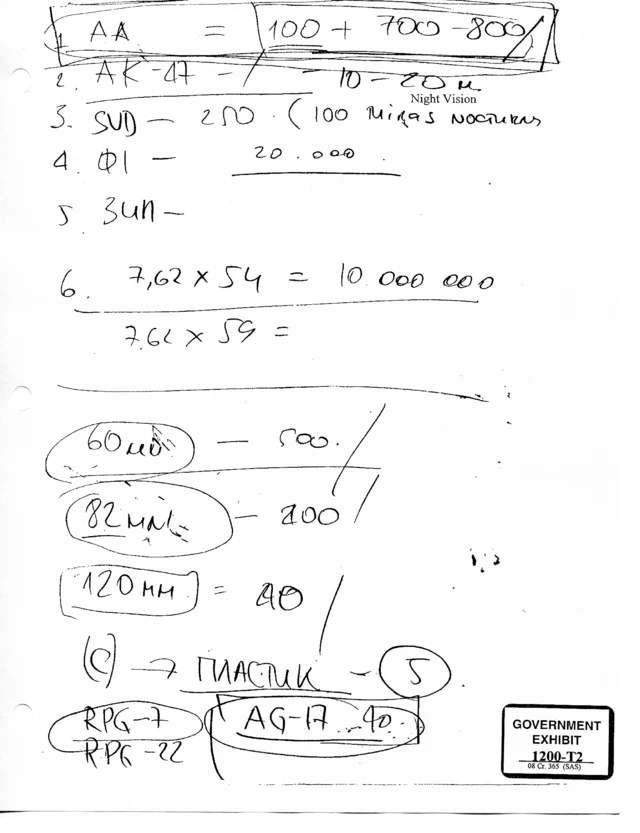 1 AA = 100 + 700-800
2. AK-47 - / - 10-20 м
Night Vision
3. SVD - 250. (100 Miras Nocturnas
4. Ф1 - 20.000
5 ЗИП -
6. 7,62 x 54 = 10 000 000
7.62 x 59 =
60 мм - 500.
82 мм - 200
120 мм = 40
(C) → ПЛАСТИК - 5
RPG-7 AG-17 - 40.
RPG-22
GOVERNMENT
EXHIBIT
1200-T2
08 Cr. 365 (SAS)